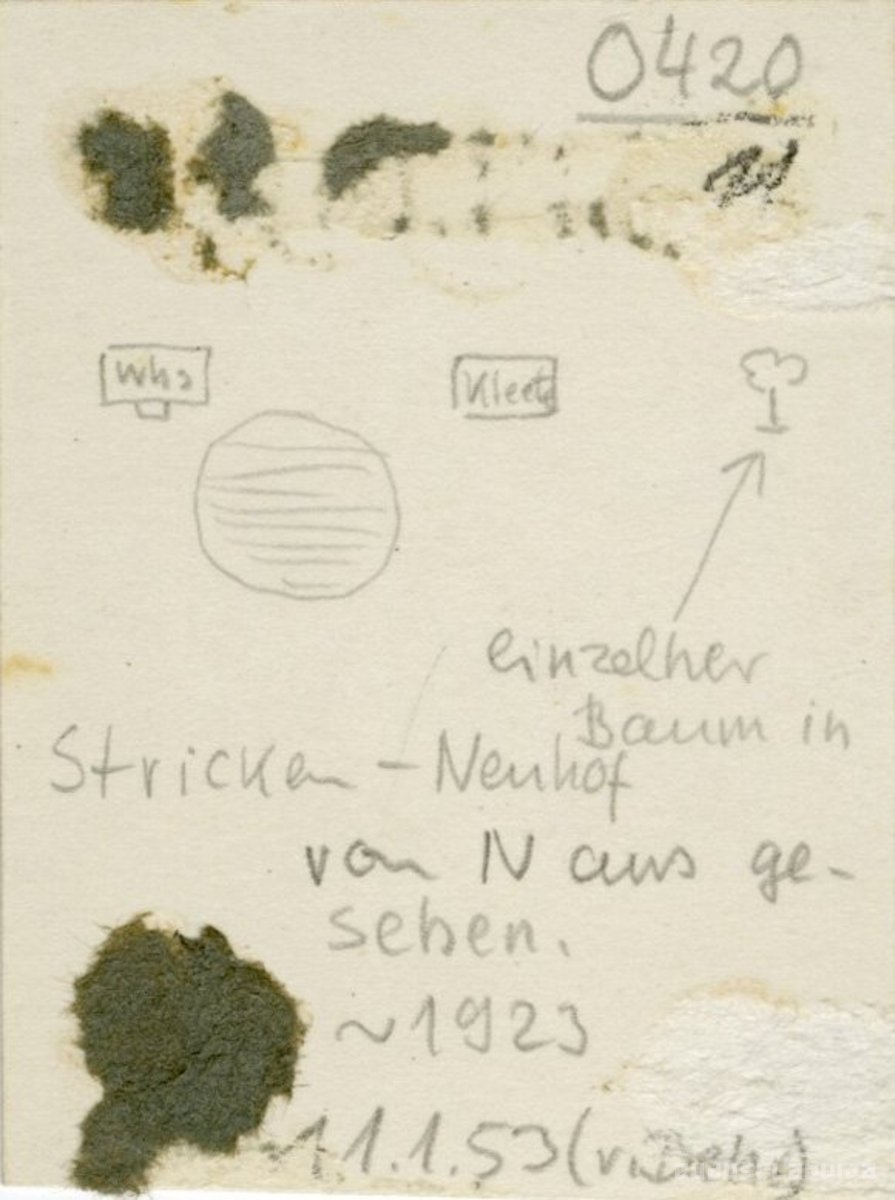 0420
Whs
Kleete
einzelner
Baum in
Stricken - Neuhof
von N aus ge-
sehen.
~1923
11.1.53